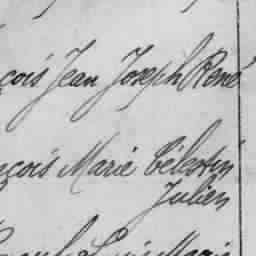 çois Jean Joseph René
nçois Marie Célestin
Julien